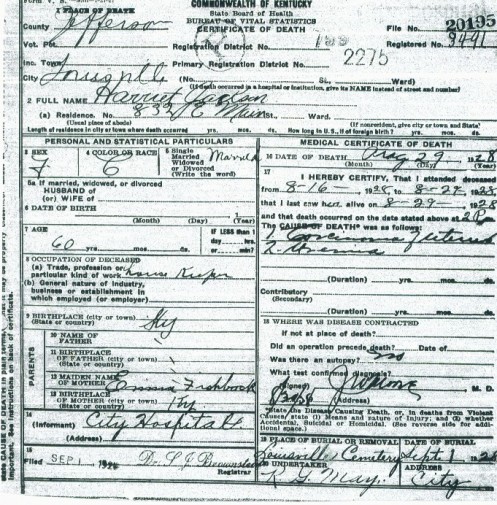 Form V. S.
COMMONWEALTH OF KENTUCKY
State Board of Health
BUREAU OF VITAL STATISTICS
CERTIFICATE OF DEATH
1 PLACE OF DEATH
County Jefferson
File No. 20195
Vot. Pct.
Registration District No.
Registered No. 3491
Inc. Town
Primary Registration District No. 2275
City Louisville (No. St., Ward)
(If death occurred in a hospital or institution, give its NAME instead of street and number)
2 FULL NAME Harriet Jackson
(a) Residence. No. 833 E Main St., Ward.
(Usual place of abode) (If nonresident, give city or town and State)
Length of residence in city or town where death occurred yrs. mos. ds. How long in U. S., if of foreign birth? yrs. mos. ds.
PERSONAL AND STATISTICAL PARTICULARS
3 SEX
F
4 COLOR OR RACE
C
5 Single
Married
Widowed
or Divorced
(Write the word)
Married
5a If married, widowed, or divorced
HUSBAND of
(or) WIFE of
6 DATE OF BIRTH
(Month) (Day) (Year)
7 AGE
60 yrs. mos. ds.
IF LESS than 1
day hrs.
or min?
8 OCCUPATION OF DECEASED
(a) Trade, profession or
particular kind of work House Keeper
(b) General nature of industry,
business or establishment in
which employed (or employer)
9 BIRTHPLACE (city or town)
(State or country) Ky
PARENTS
10 NAME OF
FATHER
11 BIRTHPLACE
OF FATHER (city or town)
(State or country)
12 MAIDEN NAME
OF MOTHER Emma Fishback
13 BIRTHPLACE
OF MOTHER (city or town)
(State or country) Ky
14
(Informant) City Hospital
(Address)
15
Filed SEP 1 1928
Registrar
MEDICAL CERTIFICATE OF DEATH
16 DATE OF DEATH Aug 29 1928
(Month) (Day) (Year)
17
I HEREBY CERTIFY, That I attended deceased
from 8-16- 1928 to 8-29- 1928
that I last saw her alive on 8-29- 1928
and that death occurred on the date stated above at 2 P m.
The CAUSE OF DEATH* was as follows:
1 Carcinoma of uterus
2 Uraemia
(Duration) yrs. mos. ds.
Contributory
(Secondary)
(Duration) yrs. mos. ds.
18 WHERE WAS DISEASE CONTRACTED
if not at place of death?
Did an operation precede death? Date of
Was there an autopsy? no
What test confirmed diagnosis?
(Signed) M. D.
(Address)
*State the Disease Causing Death, or, in deaths from Violent
Causes, state (1) Means and nature of Injury; and (2) whether
Accidental, Suicidal or Homicidal. (See reverse side for addi-
tional space.)
19 PLACE OF BURIAL OR REMOVAL
Louisville Cemetery
DATE OF BURIAL
Sept 1 1928
20 UNDERTAKER
R G May
ADDRESS
City